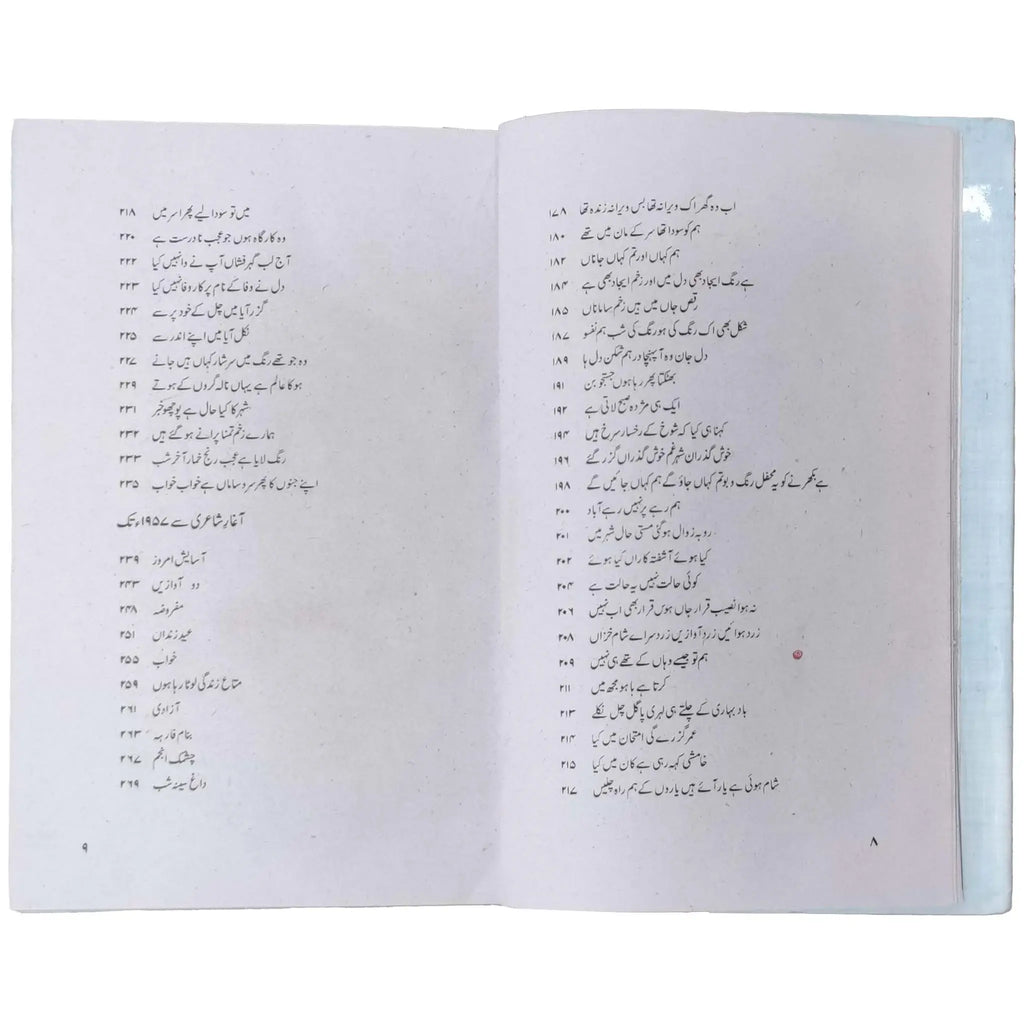 اب وہ گھر اک ویرانہ تھا بس ویرانہ زندہ تھا ۱۷۸
ہم کو سودا تھا سر کے مان میں تھے ۱۸۰
ہم کہاں اور تم کہاں جاناں ۱۸۲
ہے رنگ ایجاد بھی دل میں اور زخم ایجاد بھی ہے ۱۸۴
رقص جاں میں ہیں زخم ساماناں ۱۸۵
شکل بھی اک رنگ کی ہو رنگ کی شب ہم نفسو ۱۸۷
دل جان وہ آ پہنچا در ہم شکن دل ہا ۱۸۹
بھٹکتا پھر رہا ہوں جستجو بن ۱۹۱
ایک ہی مژدہ صبح لاتی ہے ۱۹۲
کہنا ہی کیا کہ شوخ کے رخسار سرخ ہیں ۱۹۴
خوش گذران شہر غم خوش گذراں گزر گئے ۱۹۶
ہے بکھرنے کو یہ محفل رنگ و بو تم کہاں جاؤ گے ہم کہاں جائیں گے ۱۹۸
ہم رہے پر نہیں رہے آباد ۲۰۰
رو بہ زوال ہو گئی مستی حال شہر میں ۲۰۱
کیا ہوئے آشفتہ کاراں کیا ہوئے ۲۰۲
کوئی حالت نہیں یہ حالت ہے ۲۰۴
نہ ہوا نصیب قرار جاں ہوس قرار بھی اب نہیں ۲۰۶
زرد ہوائیں زرد آوازیں زرد سراے شام خزاں ۲۰۸
ہم تو جیسے وہاں کے تھے ہی نہیں ۲۰۹
کرتا ہے ہا ہو مجھ میں ۲۱۱
باد بہاری کے چلتے ہی لہری پاگل چل نکلے ۲۱۳
عمر گزرے گی امتحان میں کیا ۲۱۴
خامشی کہہ رہی ہے کان میں کیا ۲۱۵
شام ہوئی ہے یار آئے ہیں یاروں کے ہم راہ چلیں ۲۱۷
۸
میں تو سودا لیے پھرا سر میں ۲۱۸
وہ کارگاہ ہوں جو عجب نادرست ہے ۲۲۰
آج لب گہر فشاں آپ نے وا نہیں کیا ۲۲۲
دل نے وفا کے نام پر کار وفا نہیں کیا ۲۲۳
گزر آیا میں چل کے خود پر سے ۲۲۴
نکل آیا میں اپنے اندر سے ۲۲۵
وہ جو تھے رنگ میں سرشار کہاں ہیں جانے ۲۲۷
ہو کا عالم ہے یہاں نالہ گروں کے ہوتے ۲۲۹
شہر کا کیا حال ہے پوچھو خبر ۲۳۱
ہمارے زخم تمنا پرانے ہو گئے ہیں ۲۳۲
رنگ لایا ہے عجب رنج خمار آخر شب ۲۳۳
اپنے جنوں کا پھر سرو ساماں ہے خواب خواب ۲۳۵
آغازِ شاعری سے ۱۹۵۷ء تک
آسایش امروز ۲۳۹
دو آوازیں ۲۴۳
مفروضہ ۲۴۸
عید زنداں ۲۵۱
خواب ۲۵۵
متاع زندگی لوٹا رہا ہوں ۲۵۹
آزادی ۲۶۱
بنام فارہہ ۲۶۳
چشمک انجم ۲۶۷
داغ سینہ شب ۲۶۹
۹